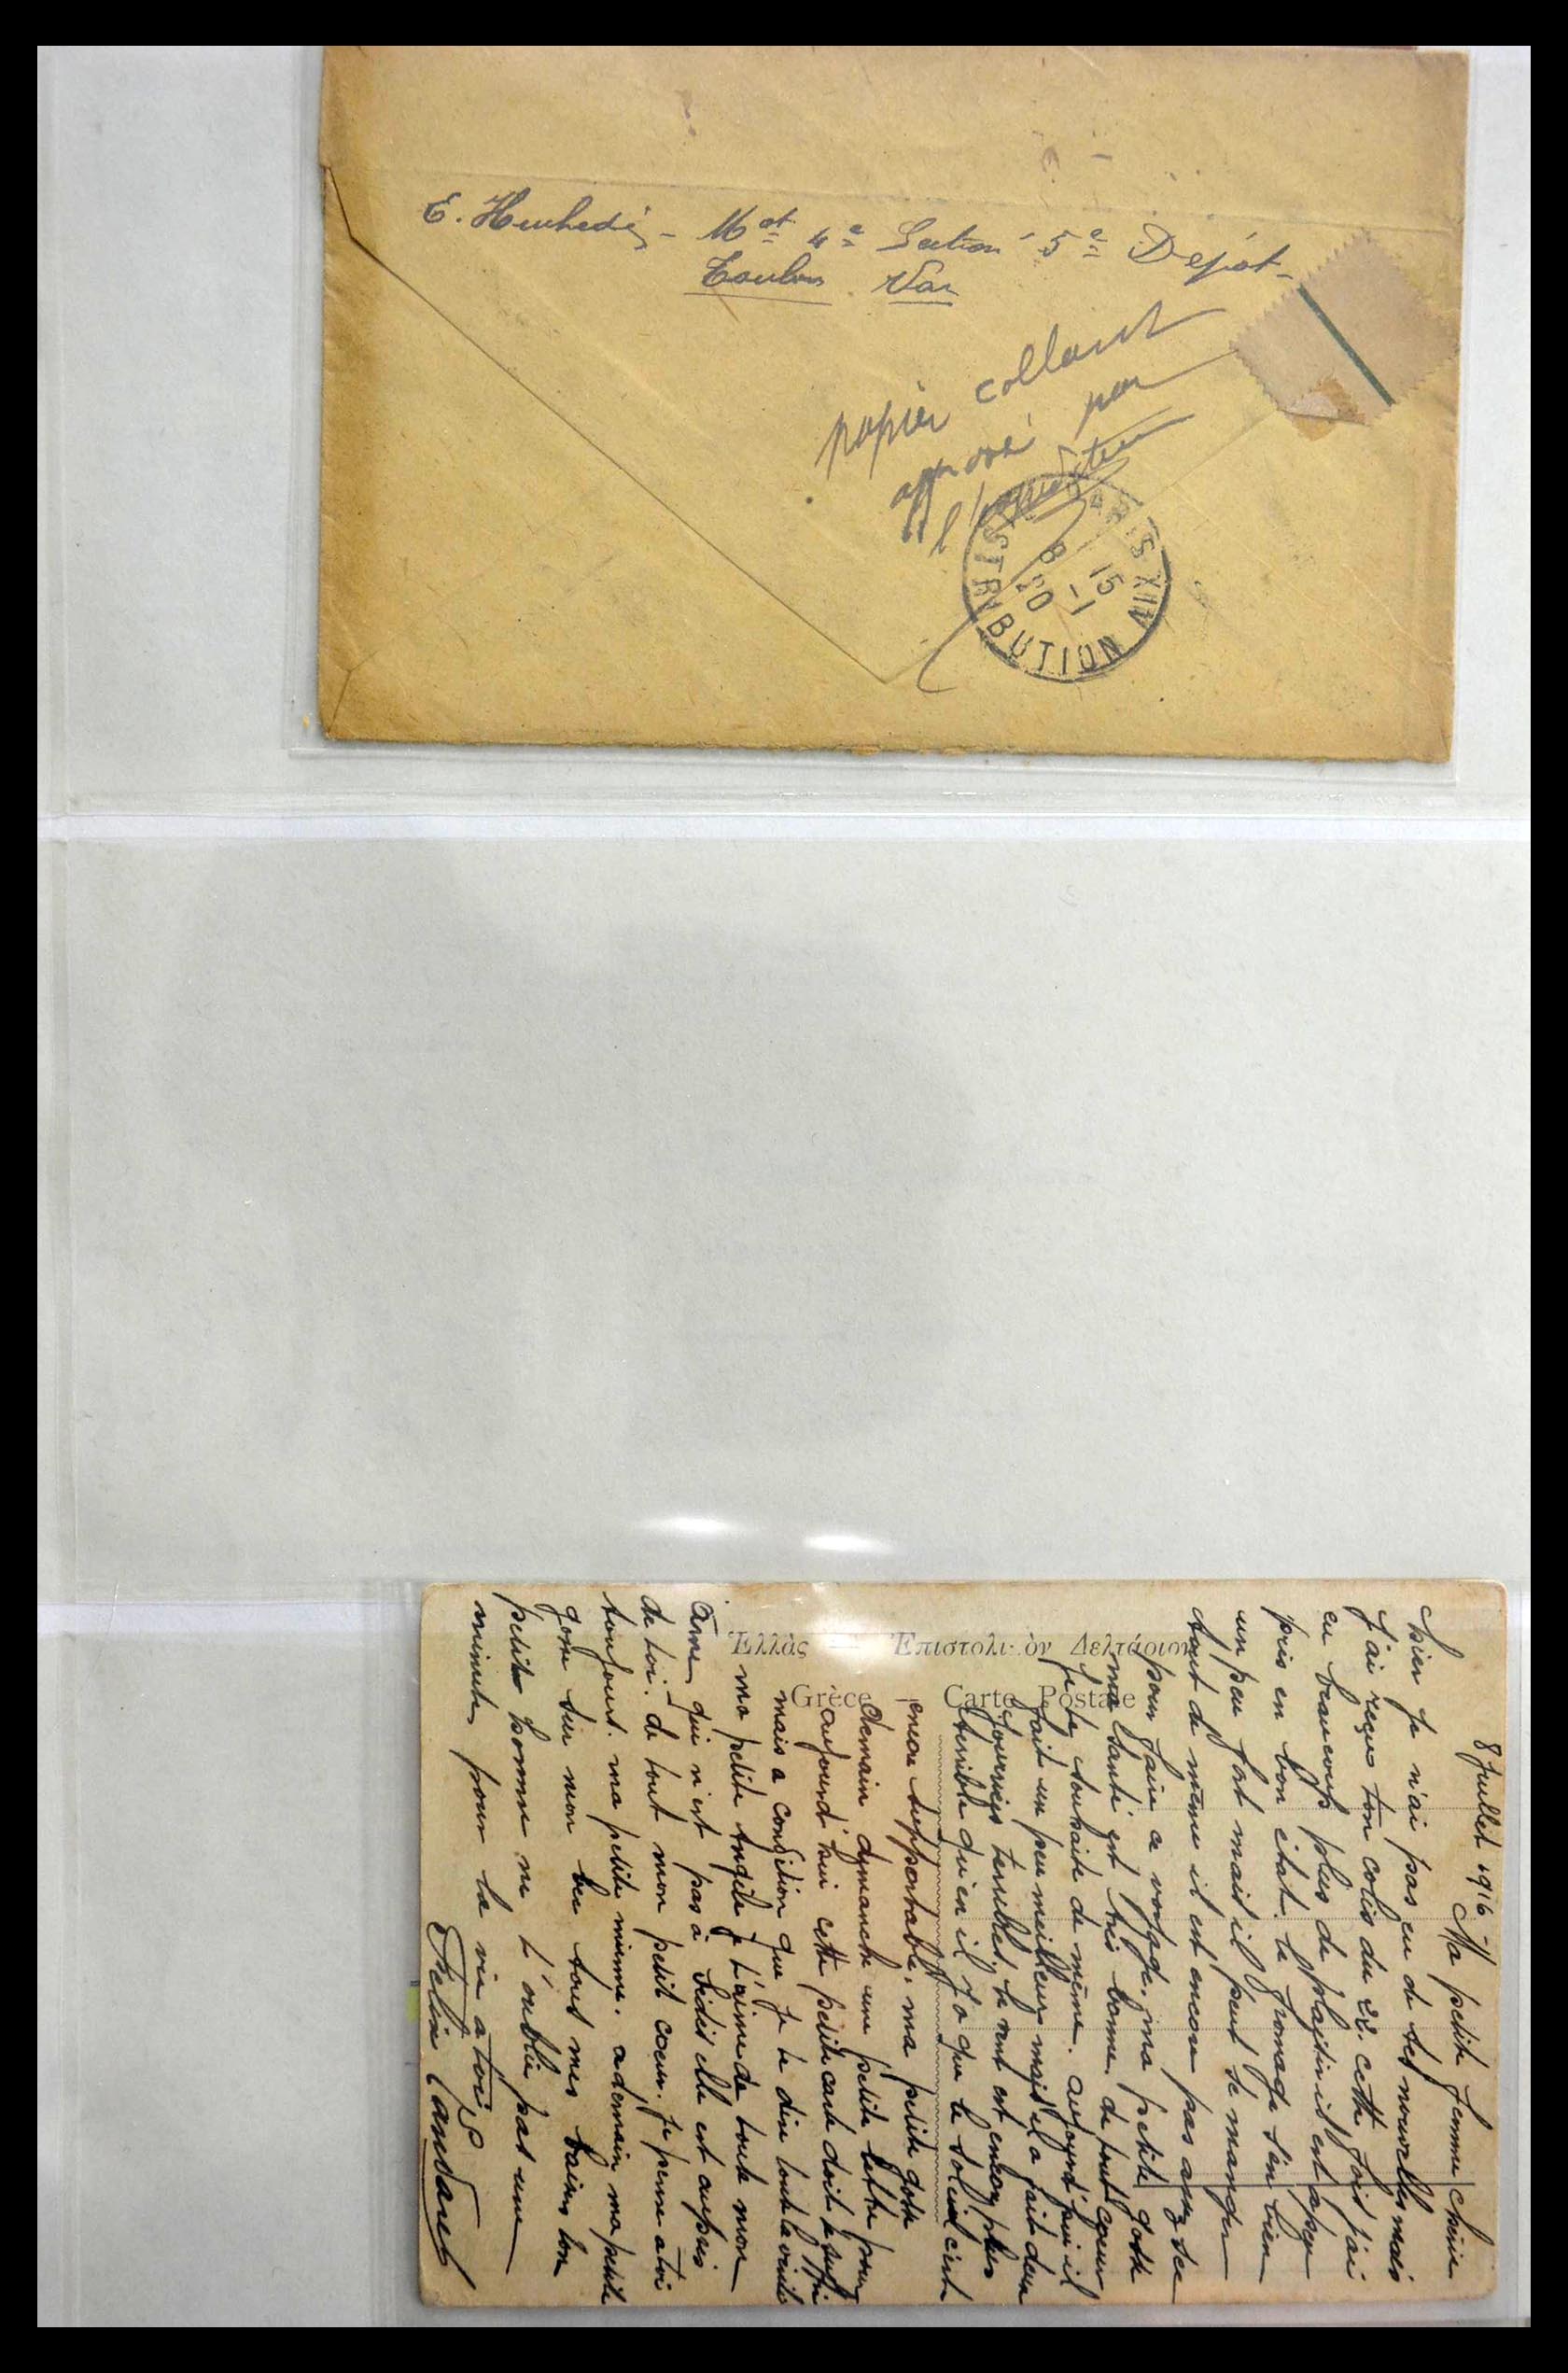 E. - Mot 4e Section 5e Dépôt -
Toulon Var
papier collant
apposé par
l'expéditeur
PARIS XIII DISTRIBUTION
15 -1
20
Ἑλλὰς — Ἐπιστολι·ὸν Δελτάριον
Grèce — Carte Postale
8 Juillet 1916 - Ma petite femme chérie
hier je n'ai pas eu de tes nouvelles mais
j'ai reçu ton colis du 22. cette fois j'ai
eu beaucoup plus de plaisir il est
pris en bon état. le fromage s'en bien
un peu fort mais il peut se manger
tout de même il est encore pas assez sec
pour faire ce voyage. ma petite gosse
ma santé est très bonne de tout coeur
je te souhaite de même. aujourd'hui il
fait un peu meilleur mais il a fait deux
journées terribles, le vent est encore plus
terrible qu'en il y a que le soleil c'est
encore supportable. ma petite gosse
demain dymanche une petite lettre pour
aujourd'hui cette petite carte doit te suffir
mais a condition que je te dise toute la vérité
ma petite Angèle je t'aime de toute mon
âme qui n'est pas à elle est auprès
de toi. de tout mon petit coeur. je pense a toi
toujours. ma petite mienne. a demain ma petite
gosse sur mon bec tous mes baisers ton
petit homme ne t'oublie pas une
minute pour la vie a toi
Felix